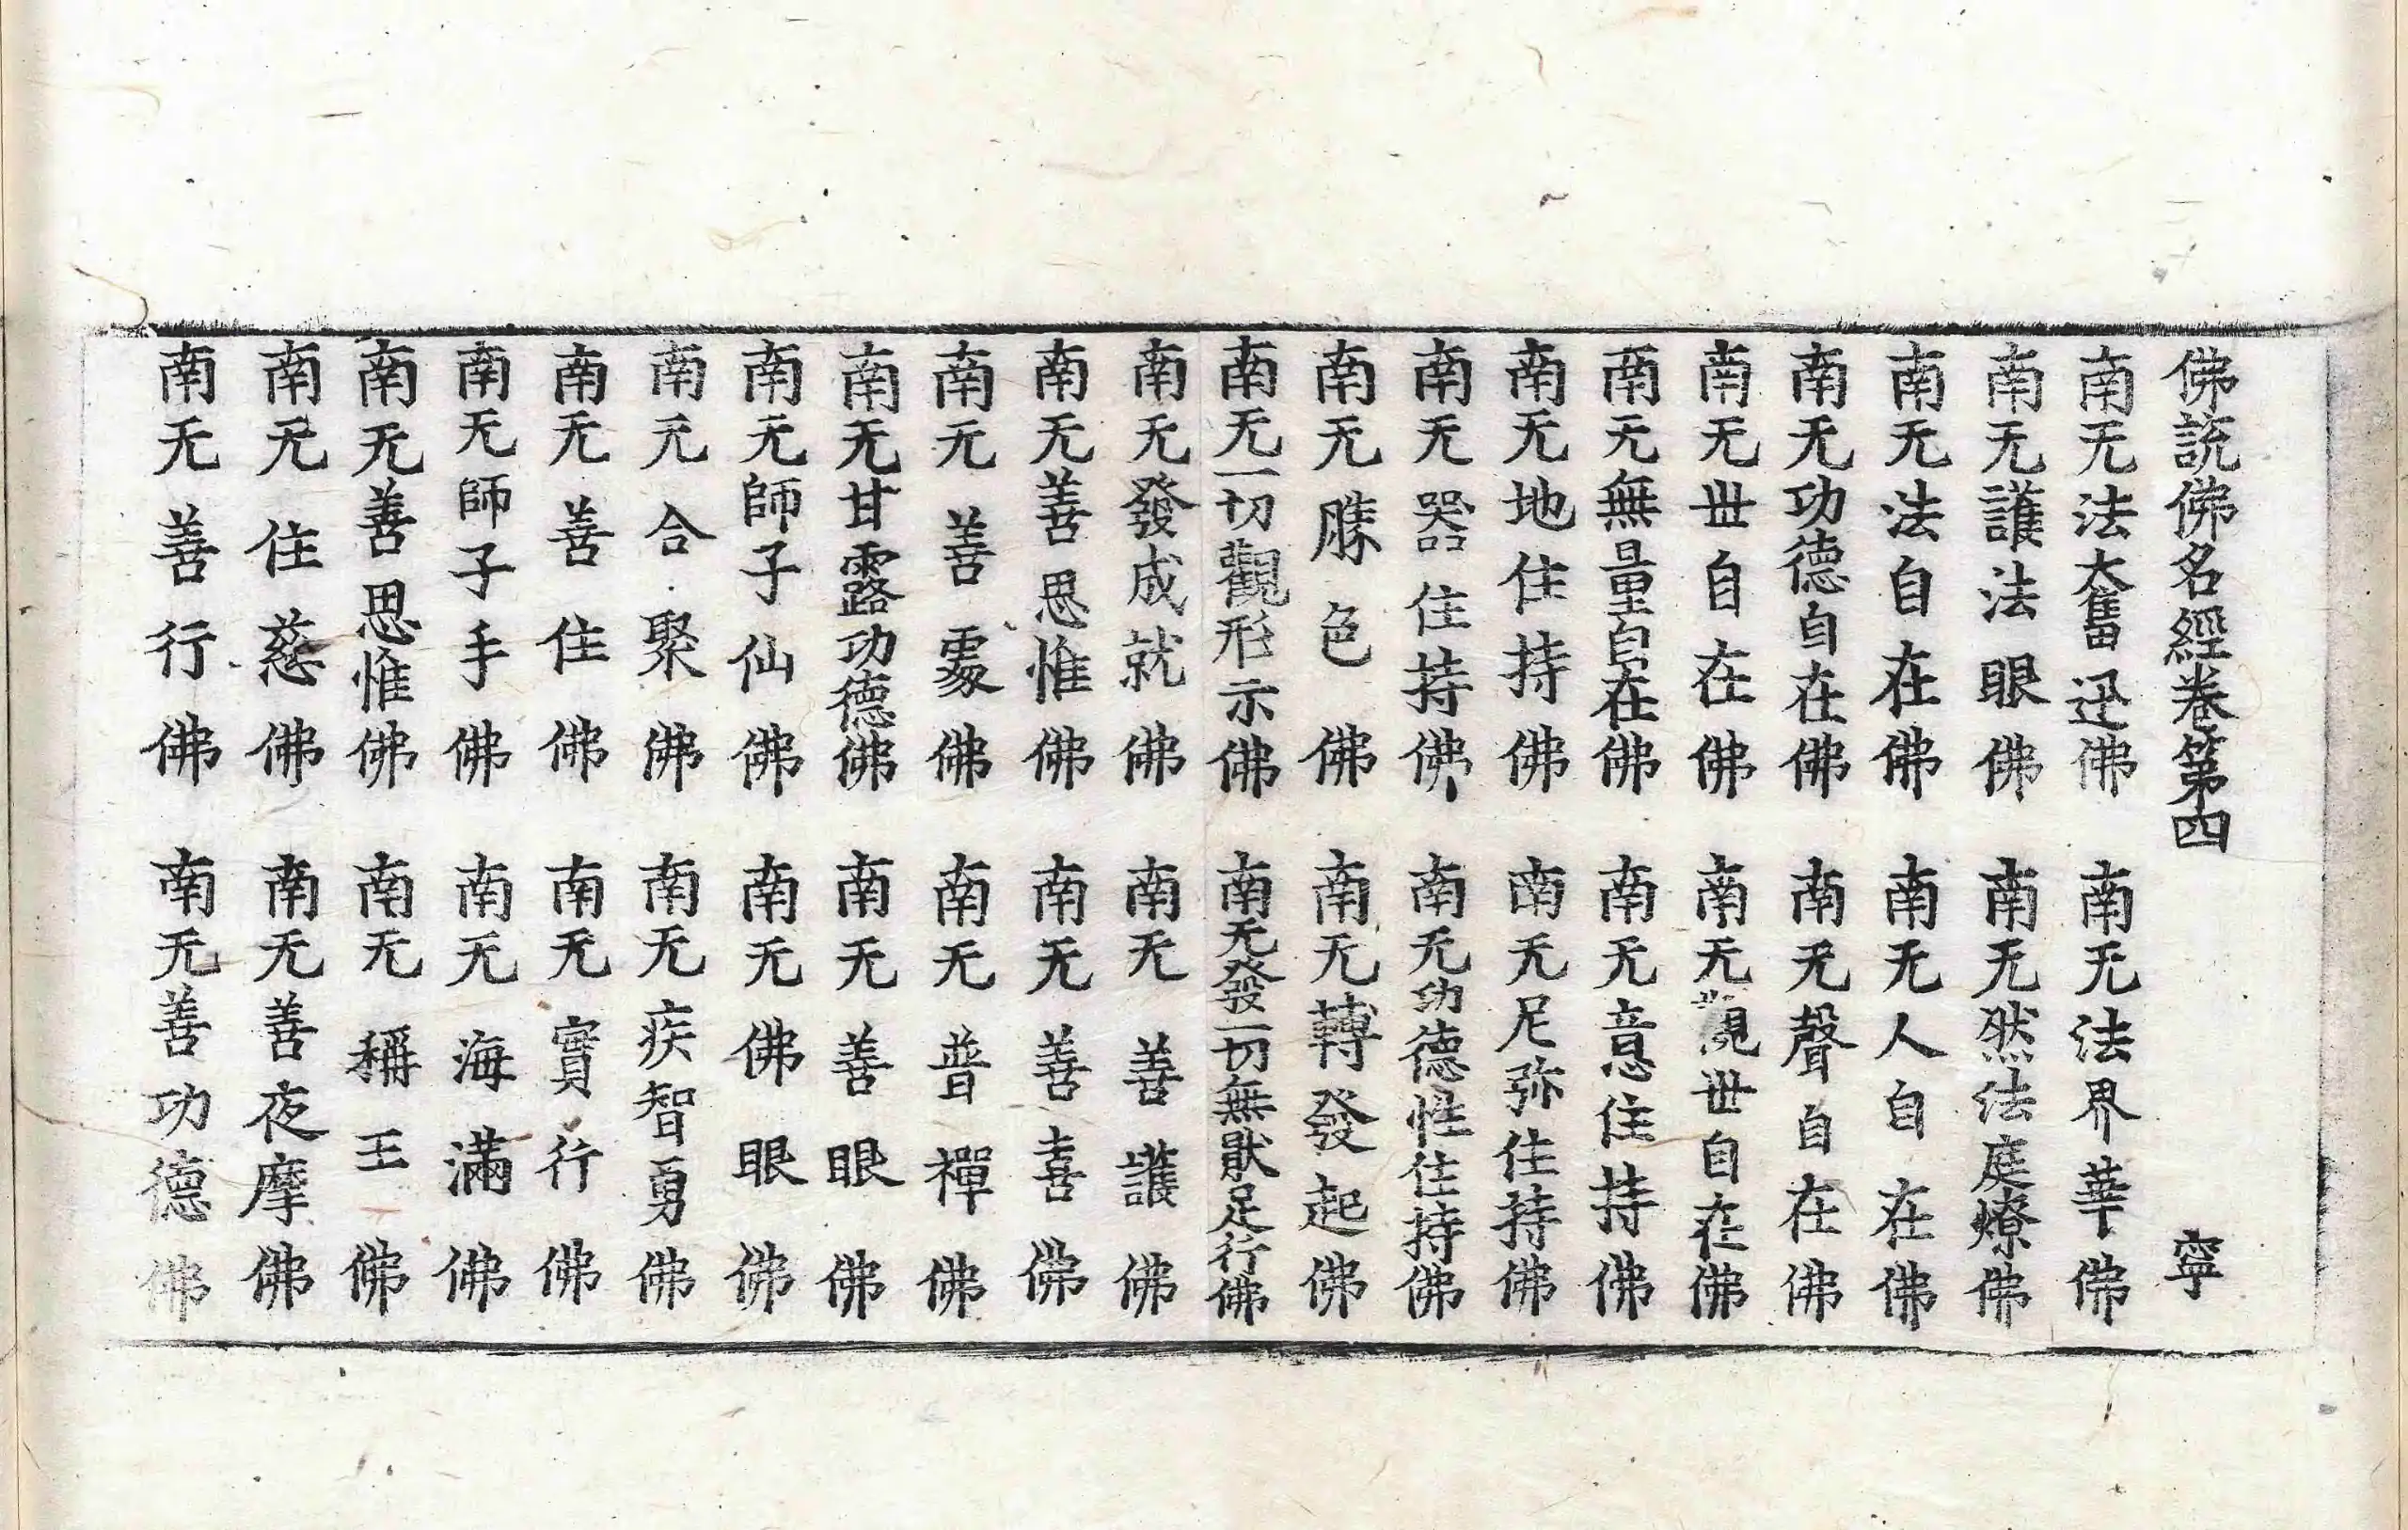 佛説佛名經卷第四 寧
南无法奮迅佛 南无法界華佛
南无護法眼佛 南无然法庭燎佛
南无法自在佛 南无人自在佛
南无功德自在佛 南无聲自在佛
南无世自在佛 南无觀世自在佛
南无無量自在佛 南无意住持佛
南无地住持佛 南无尼弥住持佛
南无器住持佛 南无功德性住持佛
南无勝色佛 南无轉發起佛
南无一切觀形示佛 南无發一切無猒足行佛
南无發成就佛 南无善護佛
南无善思惟佛 南无善喜佛
南无善處佛 南无普禪佛
南无甘露功德佛 南无善眼佛
南无師子仙佛 南无佛眼佛
南无合聚佛 南无疾智勇佛
南无善住佛 南无實行佛
南无師子手佛 南无海滿佛
南无善思惟佛 南无稱王佛
南无住慈佛 南无善夜摩佛
南无善行佛 南无善功德佛